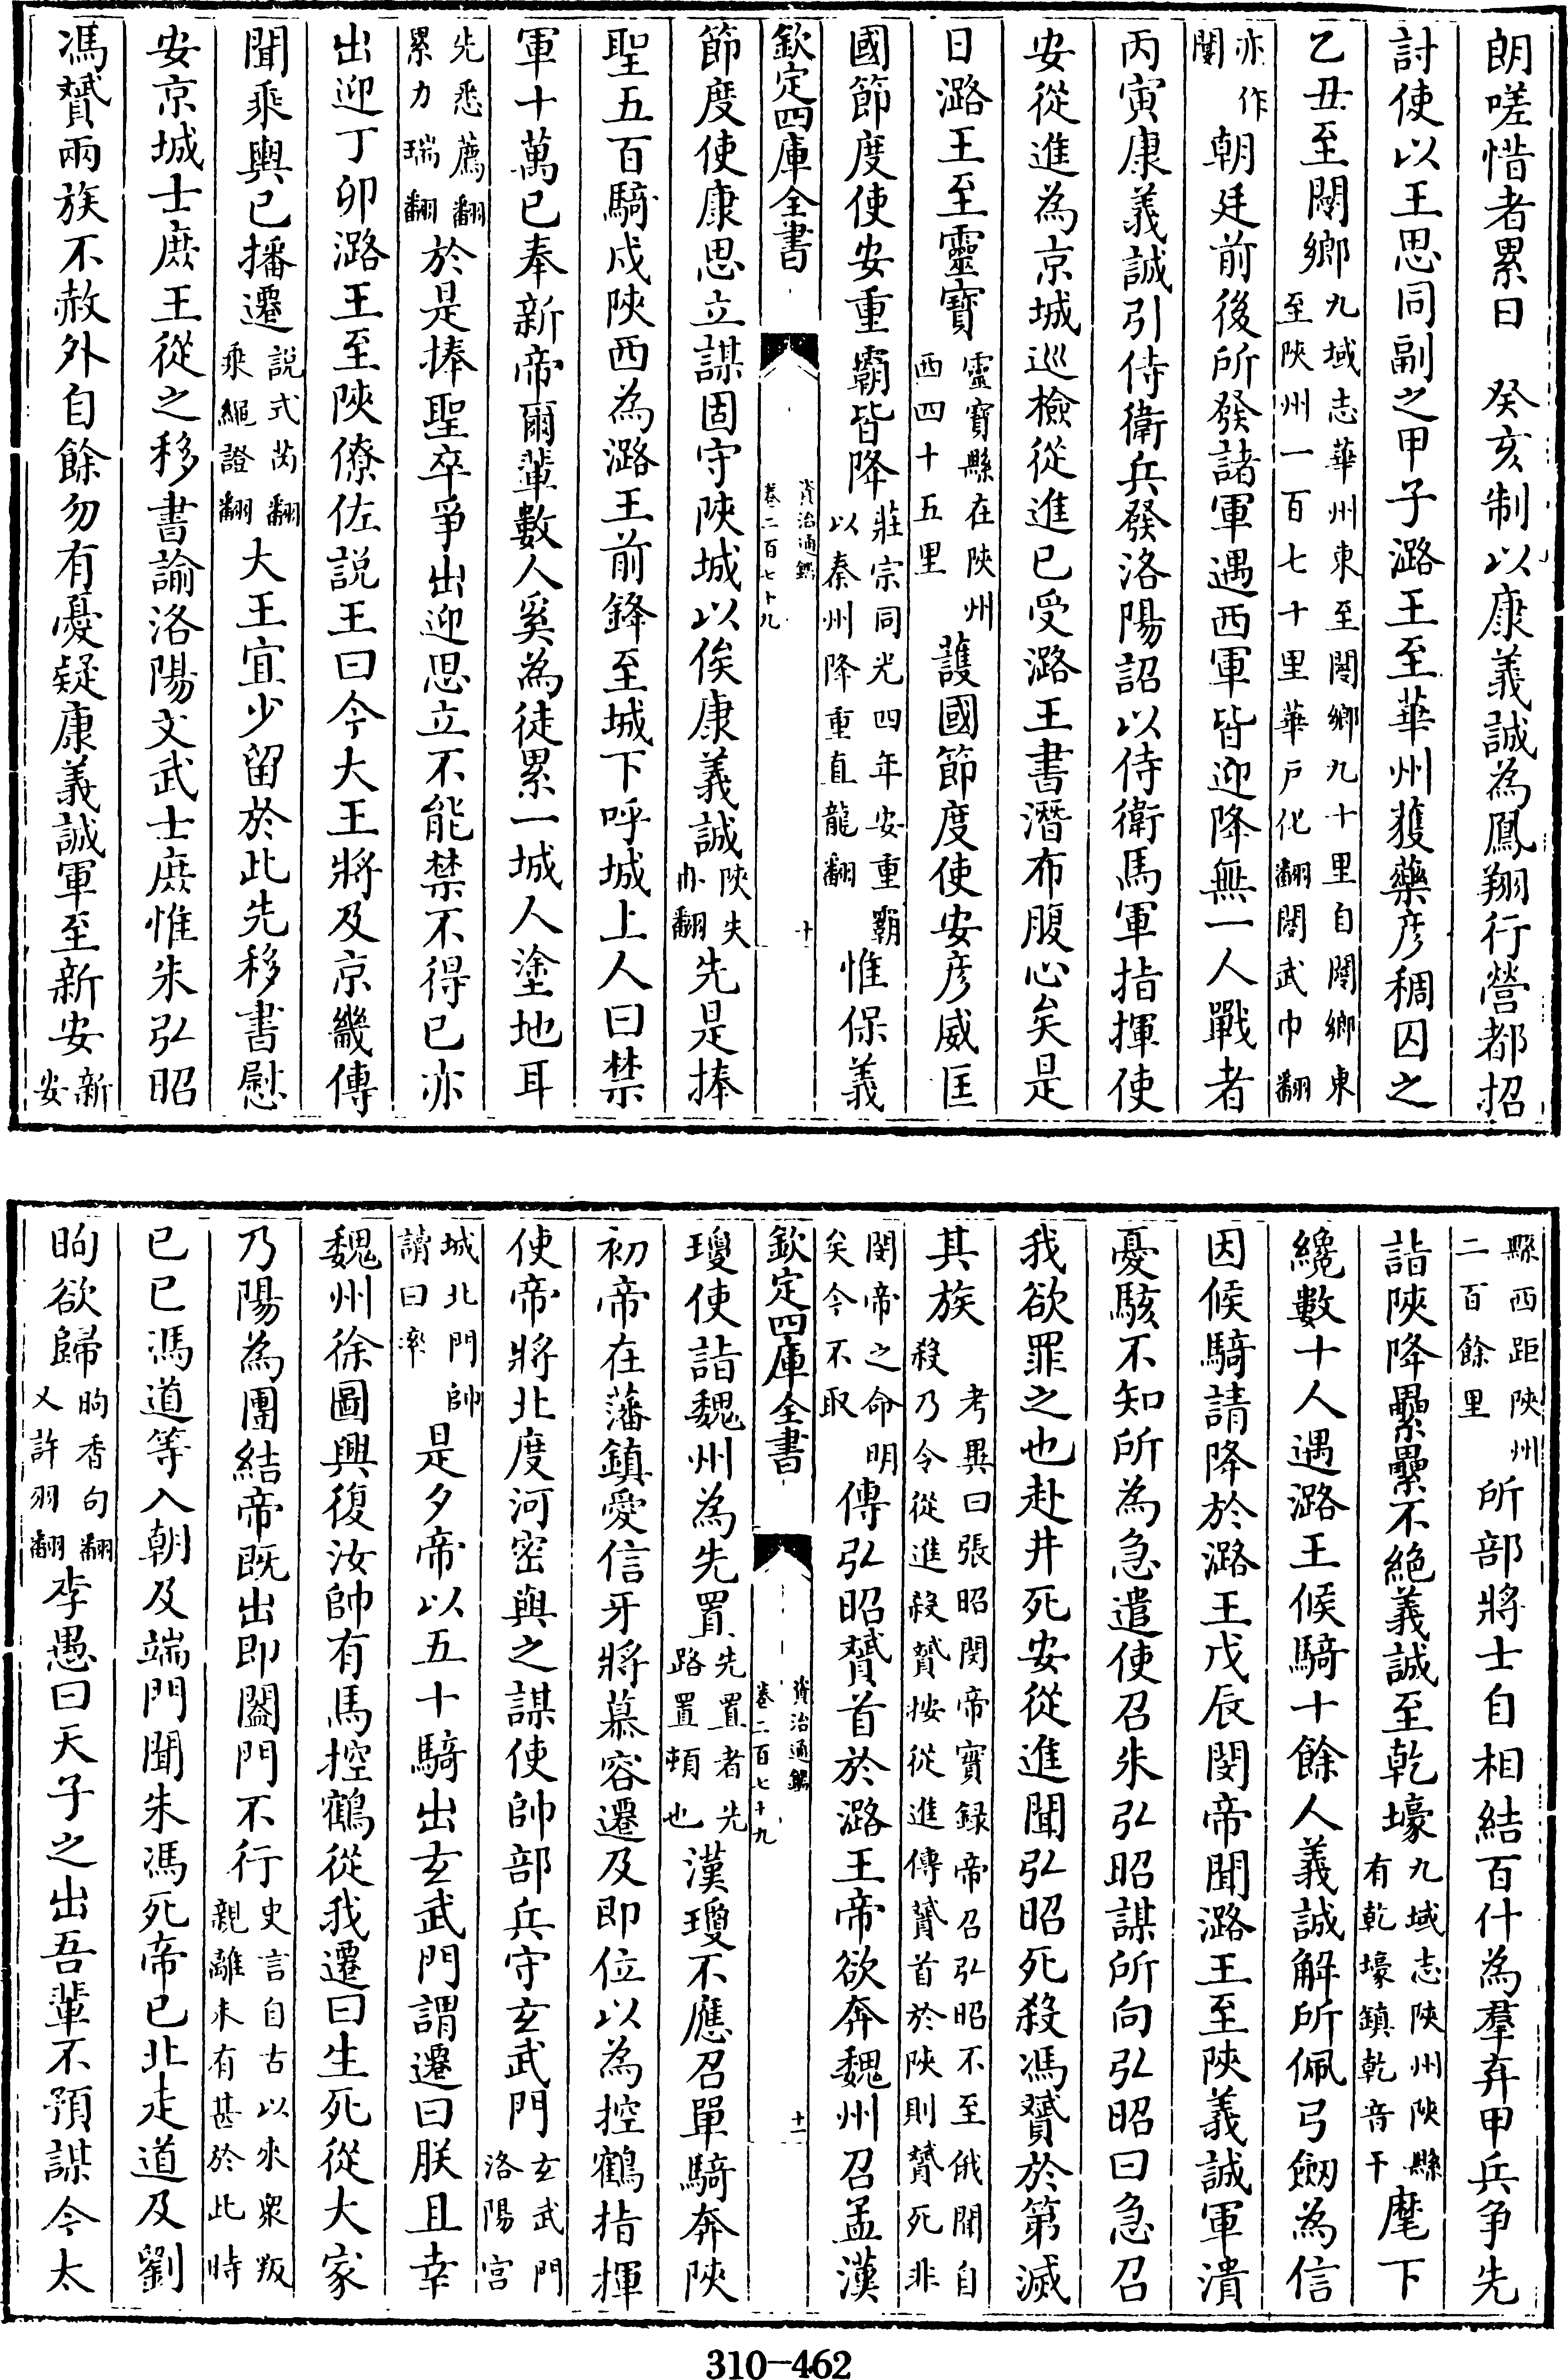 朗嗟惜者累日　癸亥制以康義誠為鳳翔行營都招
討使以王思同副之甲子潞王至華州獲藥彦稠囚之
乙丑至閿鄉九域志華州東至閿鄉九十里自閿鄉東至陜州一百七十里華户化翻閿武巾翻
亦作闅朝廷前後所發諸軍遇西軍皆迎降無一人戰者
丙寅康義誠引侍衛兵發洛陽詔以侍衛馬軍指揮使
安從進為京城巡檢從進已受潞王書潛布腹心矣是
日潞王至靈寶靈寶縣在陜州西四十五里護國節度使安彦威匡
國節度使安重霸皆降莊宗同光四年安重霸以秦州降重直龍翻惟保義
欽定四庫全書
資治通鑑卷二百七十九
十
節度使康思立謀固守陜城以俟康義誠陜失冉翻先是捧
聖五百騎戍陜西為潞王前鋒至城下呼城上人曰禁
軍十萬已奉新帝爾輩數人奚為徒累一城人塗地耳
先悉薦翻累力瑞翻於是捧聖卒爭出迎思立不能禁不得已亦
出迎丁卯潞王至陜僚佐說王曰今大王將及京畿傳
聞乘輿已播遷說式芮翻乘繩證翻大王宜少留於此先移書慰
安京城士庶王從之移書諭洛陽文武士庶惟朱弘昭
馮贇兩族不赦外自餘勿有憂疑康義誠軍至新安新安
縣西距陜州二百餘里所部將士自相結百什為羣弃甲兵争先
詣陜降纍纍不絶義誠至乾壕九域志陜州陜縣有乾壕鎮乾音干麾下
纔數十人遇潞王候騎十餘人義誠解所佩弓劔為信
因候騎請降於潞王戊辰閔帝聞潞王至陜義誠軍潰
憂駭不知所為急遣使召朱弘昭謀所向弘昭曰急召
我欲罪之也赴井死安從進聞弘昭死殺馮贇於第滅
其族考異曰張昭閔帝實録帝召弘昭不至俄聞自殺乃令從進殺贇按從進傳贇首於陜則贇死非
閔帝之命明矣今不取傳弘昭贇首於潞王帝欲奔魏州召孟漢
欽定四庫全書
資治通鑑卷二百七十九
十一
瓊使詣魏州為先置先置者先路置頓也漢瓊不應召單騎奔陜
初帝在藩鎮愛信牙將慕容遷及即位以為控鶴指揮
使帝將北度河密與之謀使帥部兵守玄武門玄武門洛陽宮
城北門帥讀曰率是夕帝以五十騎出玄武門謂遷曰朕且幸
魏州徐圖興復汝帥有馬控鶴從我遷曰生死從大家
乃陽為團結帝既出即闔門不行史言自古以來衆叛親離未有甚於此時
己巳馮道等入朝及端門聞朱馮死帝已北走道及劉
昫欲歸昫香句翻又許羽翻李愚曰天子之出吾輩不預謀今太
310-462